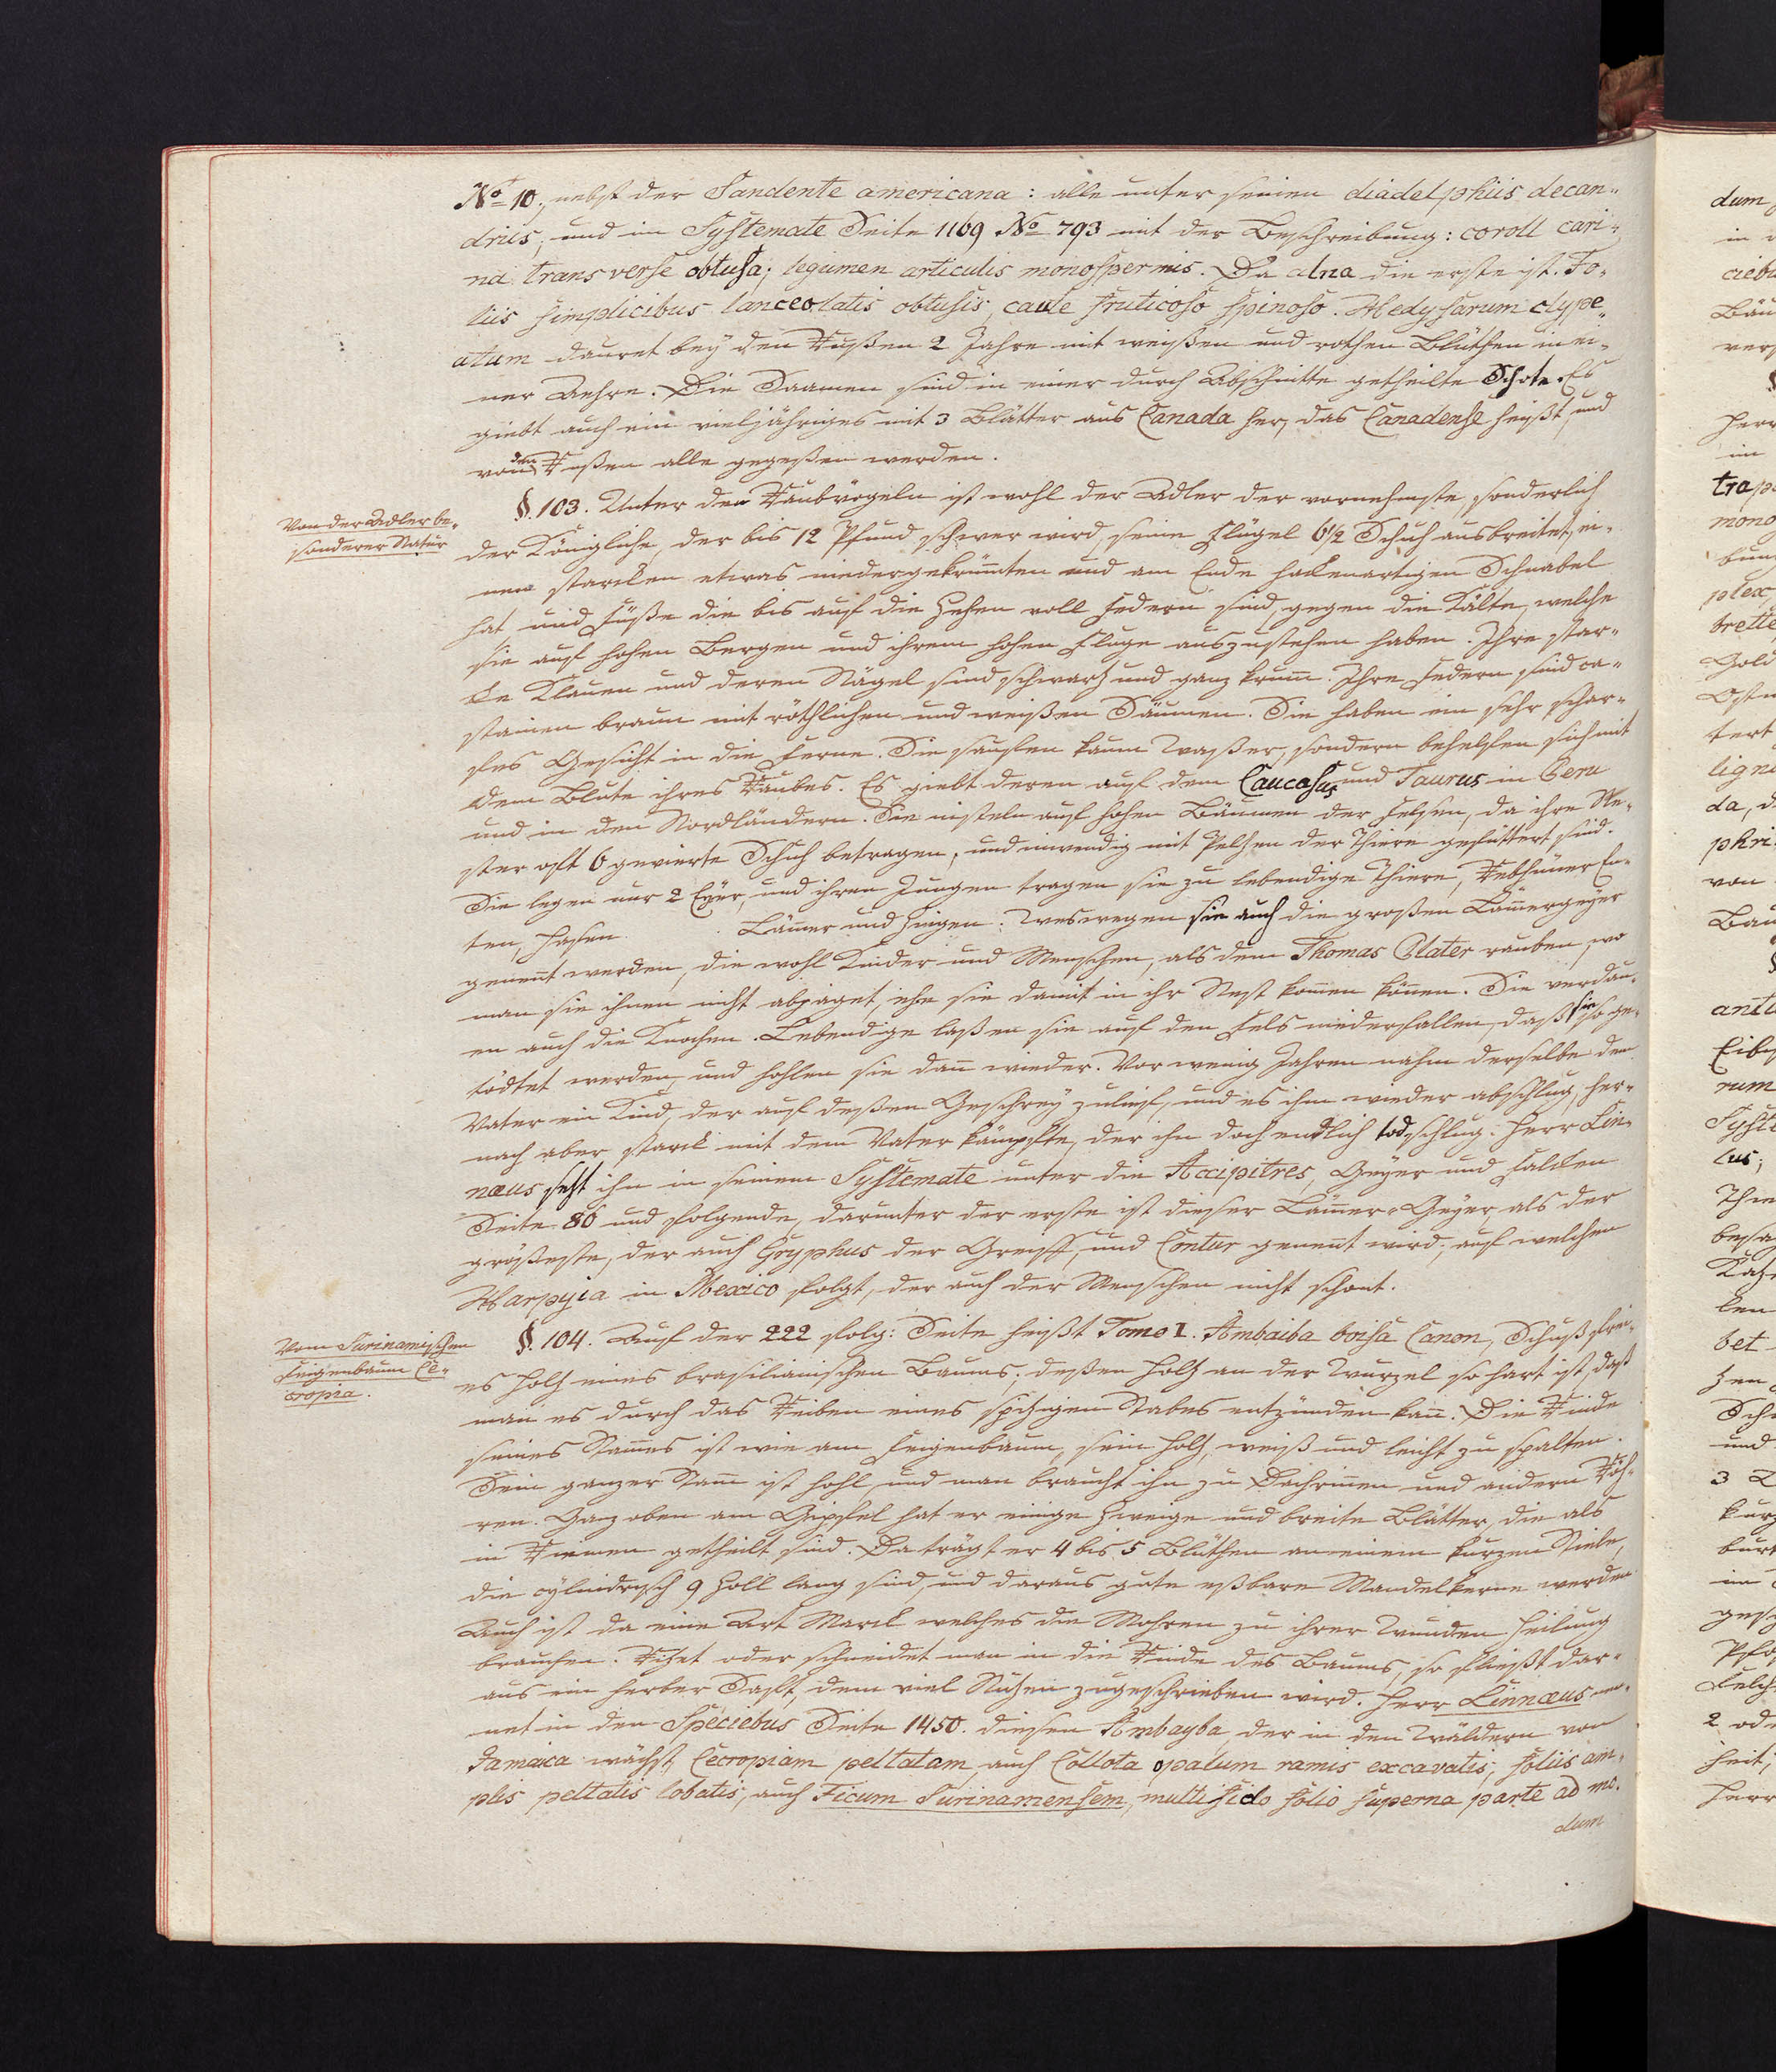 No 10., nebst der Sandente americana: alle unter seinen diadelphiis decan-
driis; und im Systemate Seite 1169 No 793 mit der Beschreibung: coroll cari-
na transverse obtusa; legumen articulis monospermis. Da alna die erste ist. Fo-
liis simplicibus lanceolatis obtusis, caule fruticoso spinoso. Hedysarum clype-
atum dauret bey den Rußen 2 Jahre mit weißen und rothen Blüthen in ei-
ner Aehre. Die Saamen sind in einer durch Abschnitte getheilte Schote. Es
giebt auch ein vieljähriges mit 3 Blätter aus Canada her, das Canadense heißt, und
von den Roßen alle gegeßen werden.
Von der Adler be-
sonderer Natur
§. 103. Unter den Raubvögeln ist wohl der Adler der vornehmste, sonderlich
der Königliche, der bis 12 Pfund schwer wird, seine Flügel 6 1/2 Schuh ausbreitet, ei-
nen starcken etwas niedergekrümten und am Ende hackenartigen Schnabel
hat und Füße die bis auf die Zehen voll Federn sind, gegen die Kälte, welche
sie auf hohen Bergen und ihrem hohen Fluge auszustehen haben. Ihre star-
cke Klauen und deren Nägel sind schwarz und ganz krumm. Ihre Federn sind ca-
stanien braun mit röthlichen und weißen Säumen. Sie haben ein sehr schar-
fes Gesicht in die Ferne. Sie sauffen kaum Waßer, sondern behelfen sich mit
dem Blute ihres Raubes. Es giebt deren auf dem Caucasus und Taurus in Peru
und in den Nordländern. Sie nisteln auf hohen Bäumen der Felsen, da ihre Ne-
ster oft 6 gevierte Schuh betragen, und inwendig mit Pelzen der Thiere gefüttert sind.
Sie legen nur 2 Eyer, und ihren Jungen tragen sie zu lebendige Thiere, Rebhüner En-
ten, Hasen Lämer und Ziegen: weswegen sie auch die großen Lämergeyer
genent werden, die wohl Kinder und Menschen, als dem Thomas Plater rauben, wo
man sie ihnen nicht abjaget, ehe sie damit in ihr Nest komen können. Sie verdau-
en auch die Knochen. Lebendige laßen sie auf den Fels niederfallen, daß sie so ge-
tödtet werden, und hohlen sie dann wieder. Vor wenig Jahren nahm derselbe dem
Vater ein Kind, der auf deßen Geschrey zulief, und es ihm wieder abschlug, her-
nach aber starck mit dem Vater kämpfte, der ihn doch endlich todschlug. Herr Lin-
næus setzt ihn in seinem Systemate unter die Accipitres, Geyer und Falcken
Seite 86 und folgende, darunter der erste ist dieser Lämer-Geyer, als der
größeste, der auch Gryphus der Greiff, und Contur genent wird; auf welchen
Harpyia in Mexico folgt, der auch der Menschen nicht schont.
Vom Surinamischen
Feigenbaum Ce-
cropia.
§. 104. Auf der 222 folg: Seite heißt Tomo I. Ambaiba boisa Canon, Schuß frei-
es Holz eines brasilianischen Baums; deßen Holz an der Wurzel so hart ist, daß
man es durch das Reiben eines spizigen Stabes entzünden kann. Die Rinde
seines Stames ist wie am Feigenbaum, sein Holz, weiß und leicht zu spalten.
Sein ganzer Stam ist hohl, und man braucht ihn zu Dachrinnen und andern Röh-
ren. Ganz oben am Gipfel hat er einige Zweige und breite Blätter, die als
in Riemen getheilt sind. Da trägt er 4 bis 5 Blüthen an einem kurzen Stiele,
die cylindrisch 9 Zoll lang sind, und daraus gute eßbare Mandelkerne werden
Auch ist da eine Art Marck welches die Mohren zu ihrer Wunden Heilung
brauchen. Rizet oder schneidet man in die Rinde des Baums, so fließt dar-
aus ein herber Saft, dem viel Nuzen zugeschrieben wird. Herr Linnæus nen-
net in den Speciebus Seite 1450. diesen Ambayba, der in den Wäldern von
Jamaica wächst, Cecropiam peltatam, auch Collota opalum ramis excavatis, foliis am-
plis peltatis lobatis, auch Ficum Surinamensem, multifido folio superna parte ad mo-
dum